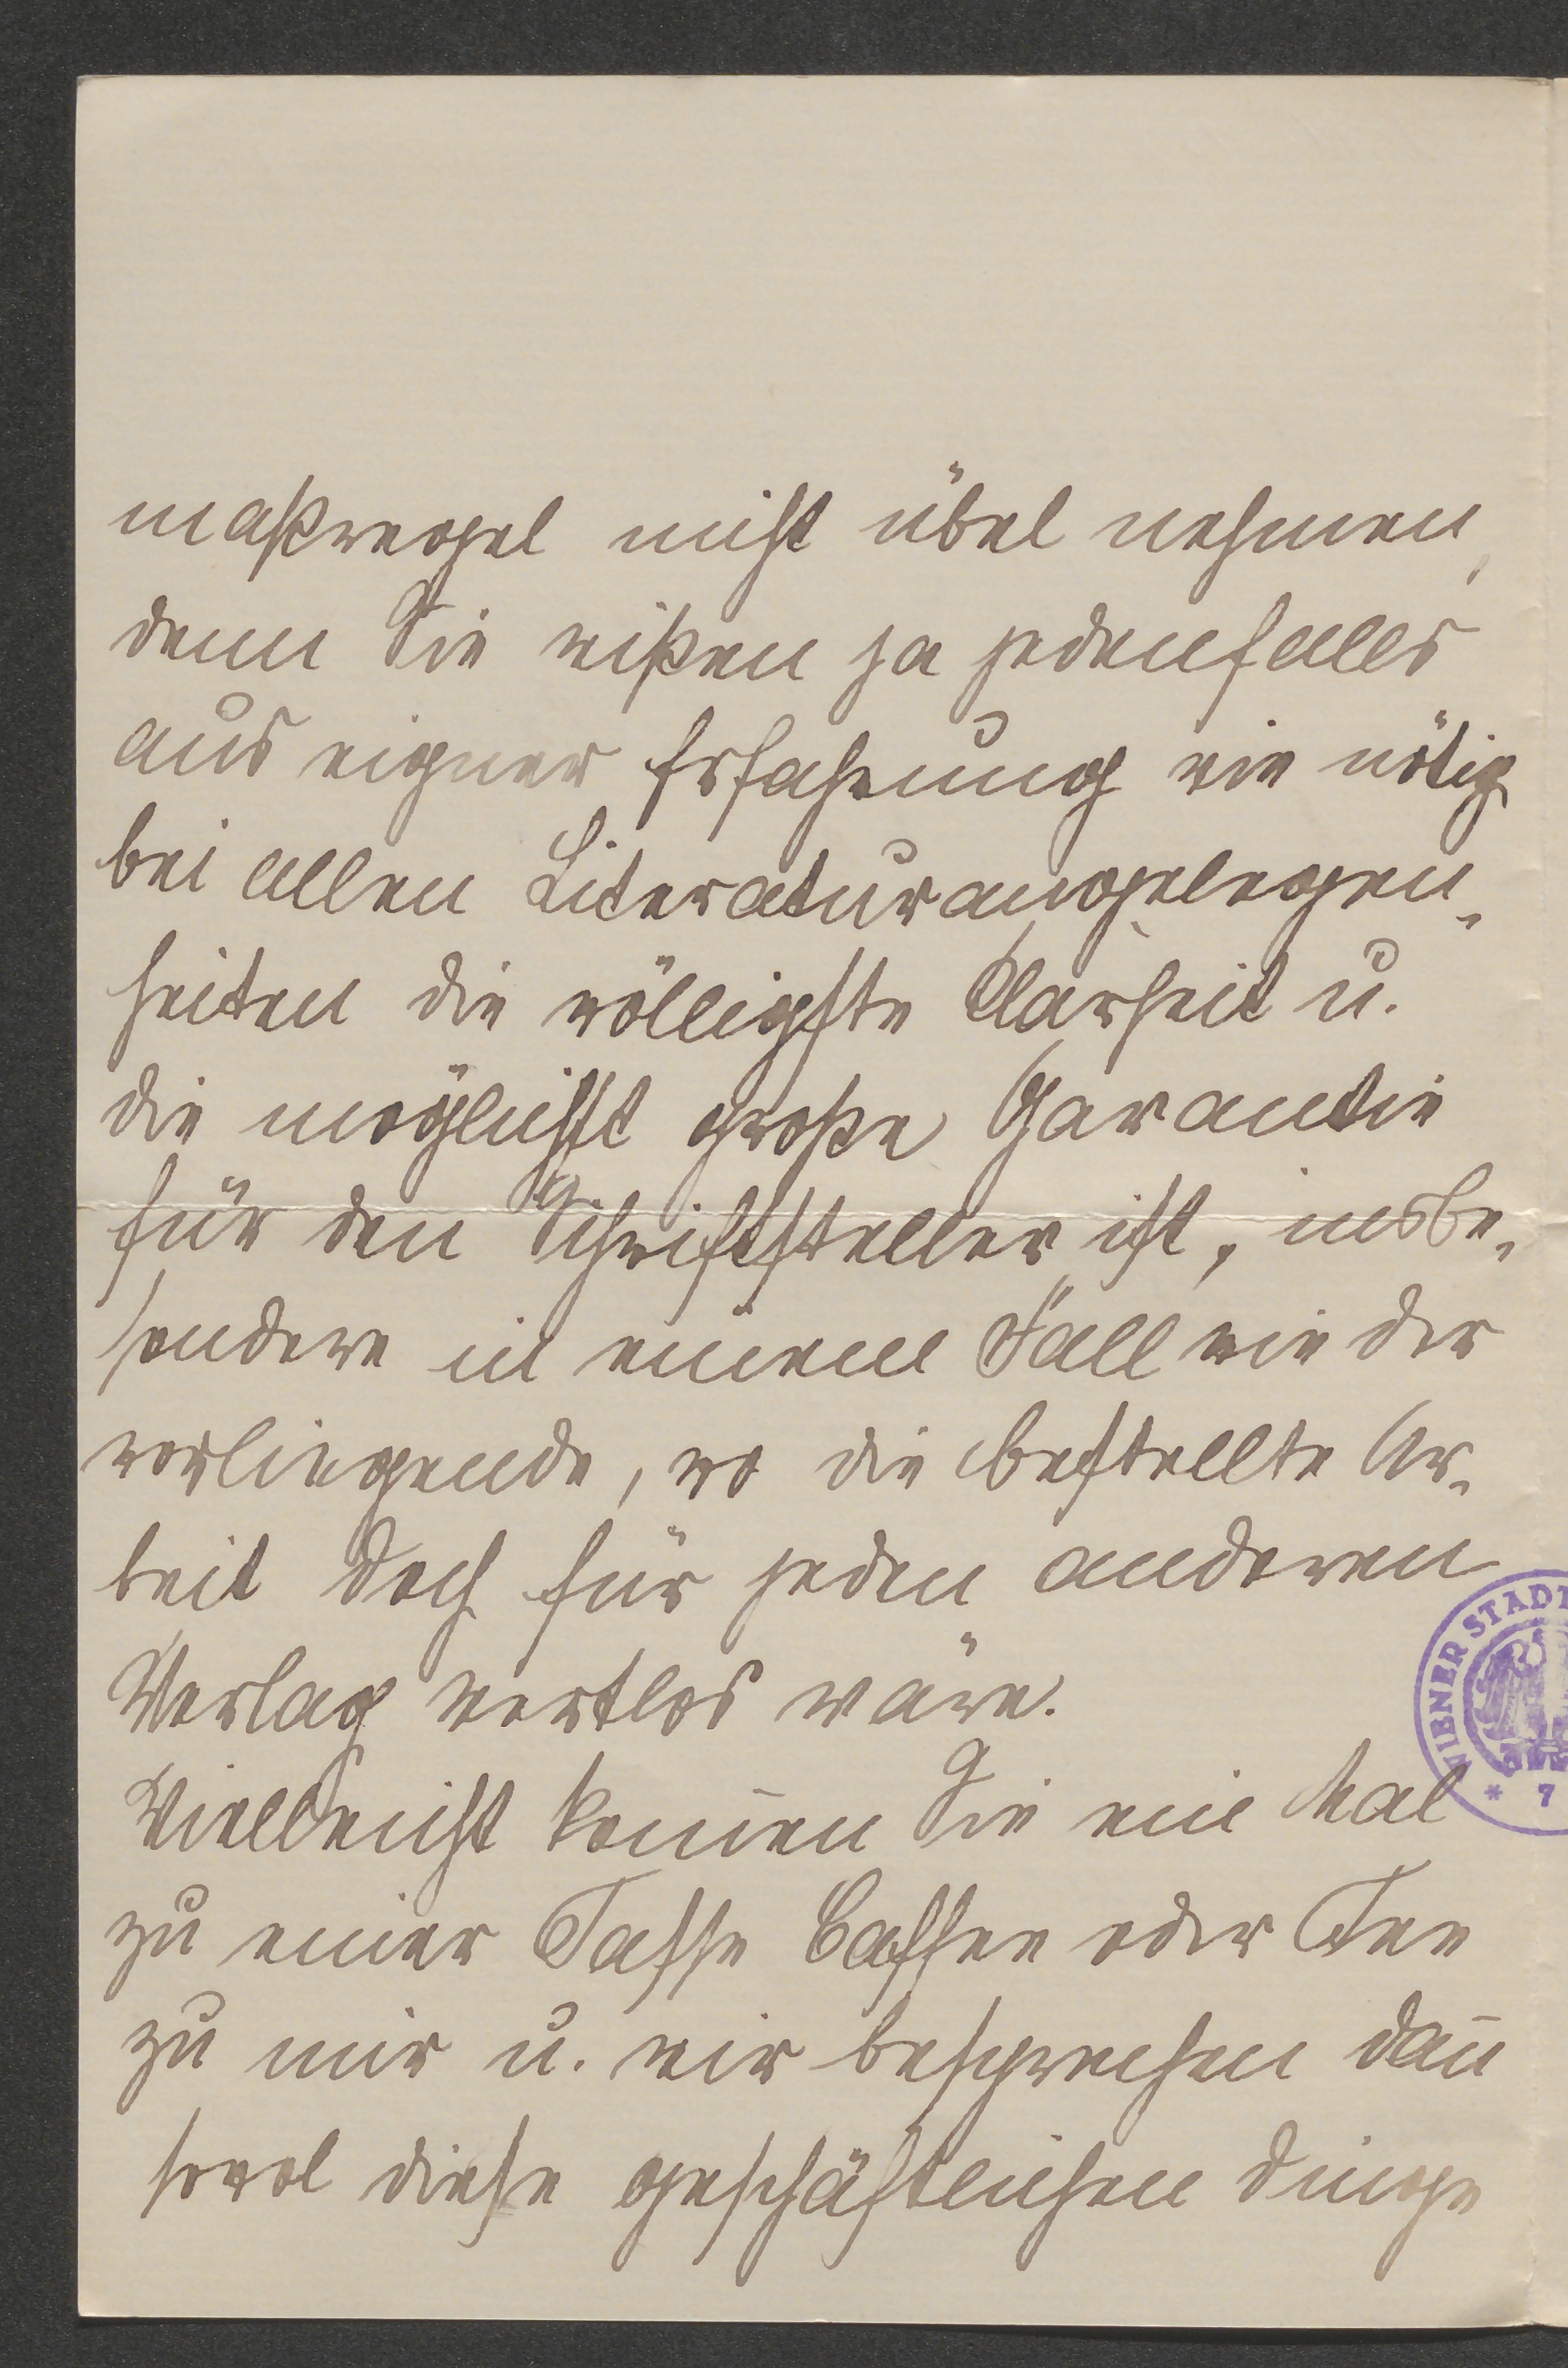 maßregel nicht übel nehmen,
denn Sie wißen ja jedenfalls
aus eigner Erfahrung wie nötig
bei allen Literaturangelegen-
heiten die völligste Klarheit u.
die möglichst große Garantie
für den Schriftsteller ist, insbe-
sondere in einem Fall wie der
vorliegende, wo die bestellte Ar-
beit doch für jeden anderen
Verlag wertlos wäre.
Vielleicht kom̄en Sie ein Mal
zu einer Tasse Caffee oder Tee
zu mir u. wir besprechen dan̄
sowol diese geschäftlichen Dinge
WIENER STADT
* 7